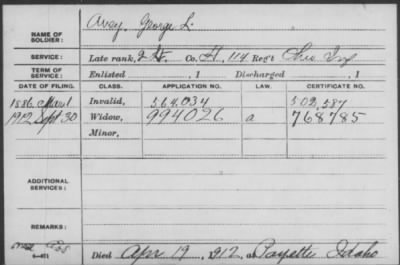 Avey, George L.
NAME OF SOLDIER:
SERVICE: Late rank, 2 Lt. Co. H, 114 Reg't Ohio Inf
TERM OF SERVICE: Enlisted , 1 Discharged , 1
DATE OF FILING. CLASS. APPLICATION NO. LAW. CERTIFICATE NO.
1886 Invalid, 564.034 502,587
1912 Sept 30 Widow, 994026 a 768785
Minor,
ADDITIONAL SERVICES:
REMARKS:
Died Apr 19, 1912, at Payette Idaho